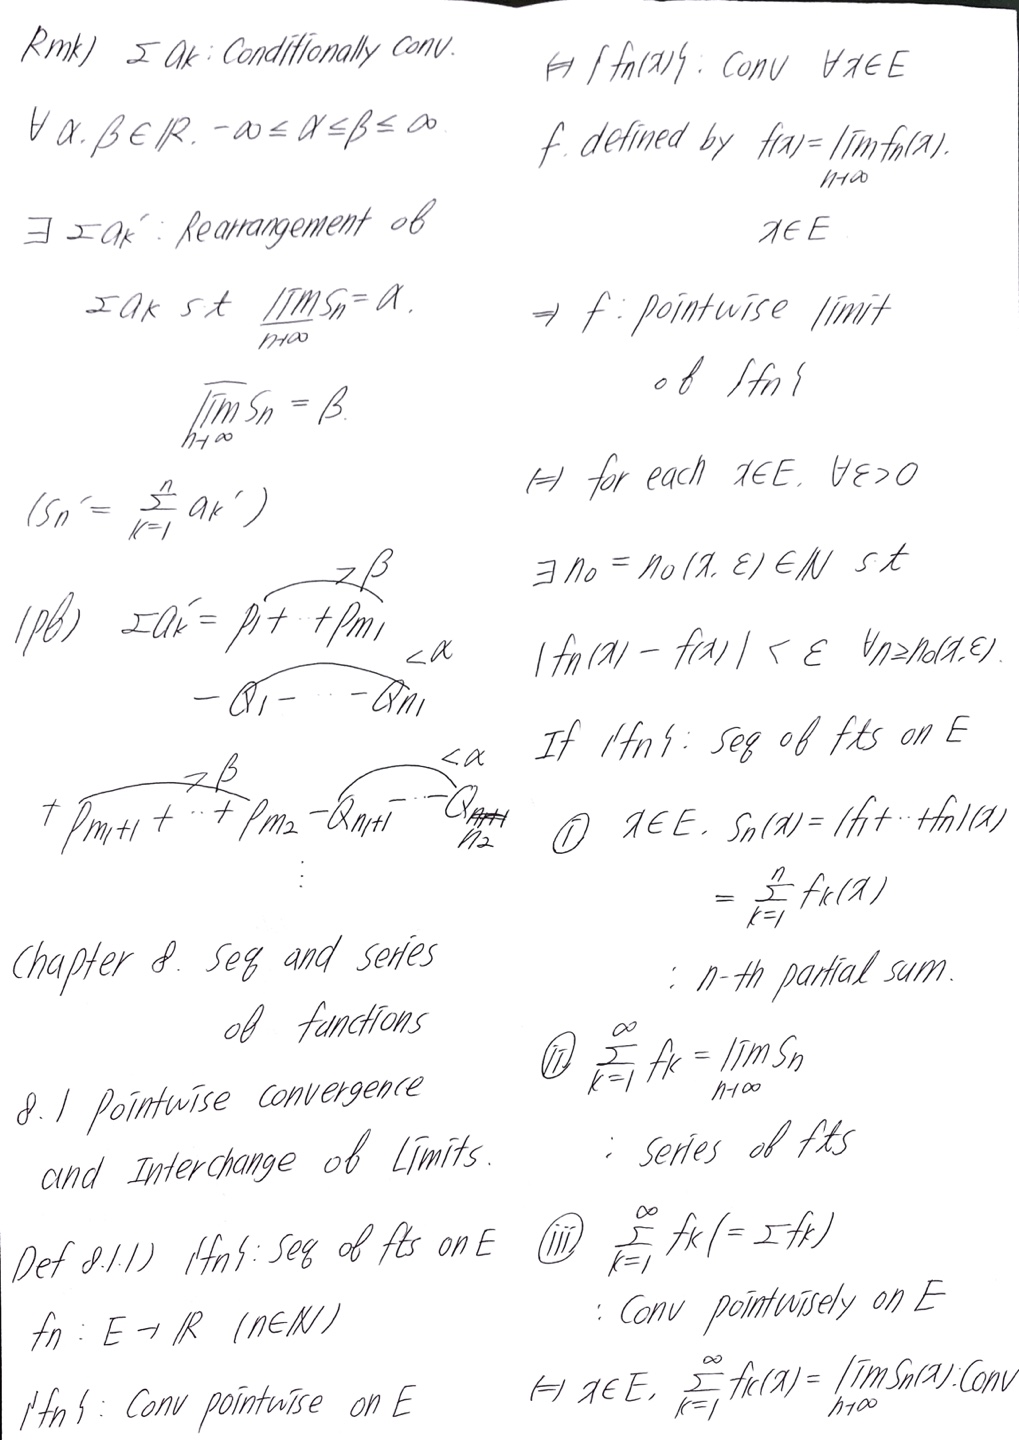 Rmk) Σ ak : Conditionally Conv.
∀ α. β ∈ ℝ. -∞ ≤ α ≤ β ≤ ∞.
∃ Σ ak' : Rearrangement of
Σ ak s.t lim Sn' = α.
n→∞
lim Sn = β.
n→∞
(Sn' = Σ ak')
n
k=1
(pf) Σ ak' = P1 + ·· + Pm1
> β
< α
- Q1 - ··· - Qn1
> β < α
+ Pm1+1 + ·· + Pm2 - Qn1+1 - ·· - Q
n2
⋮
Chapter 8. seq and series
of functions
8.1 Pointwise convergence
and Interchange of Limits.
Def 8.1.1) {fn} : seq of fts on E
fn : E → ℝ (n∈ℕ)
{fn} : Conv pointwise on E
⇔ {fn(x)} : Conv ∀x∈E
f. defined by f(x) = lim fn(x).
n→∞
x∈E
⇒ f : pointwise limit
of {fn}
⇔ for each x∈E. ∀ε>0
∃ n0 = n0(x. ε) ∈ℕ s.t
|fn(x) - f(x)| < ε ∀n≥n0(x.ε).
If {fn} : seq of fts on E
① x∈E. Sn(x) = (f1 + ·· + fn)(x)
= Σ fk(x)
n
k=1
: n-th partial sum.
ⅱ Σ fk = lim Sn
∞
k=1 n→∞
: series of fts
ⅲ Σ fk (= Σ fk)
∞
k=1
: Conv pointwisely on E
⇔ x∈E. Σ fk(x) = lim Sn(x) : Conv
∞
k=1 n→∞